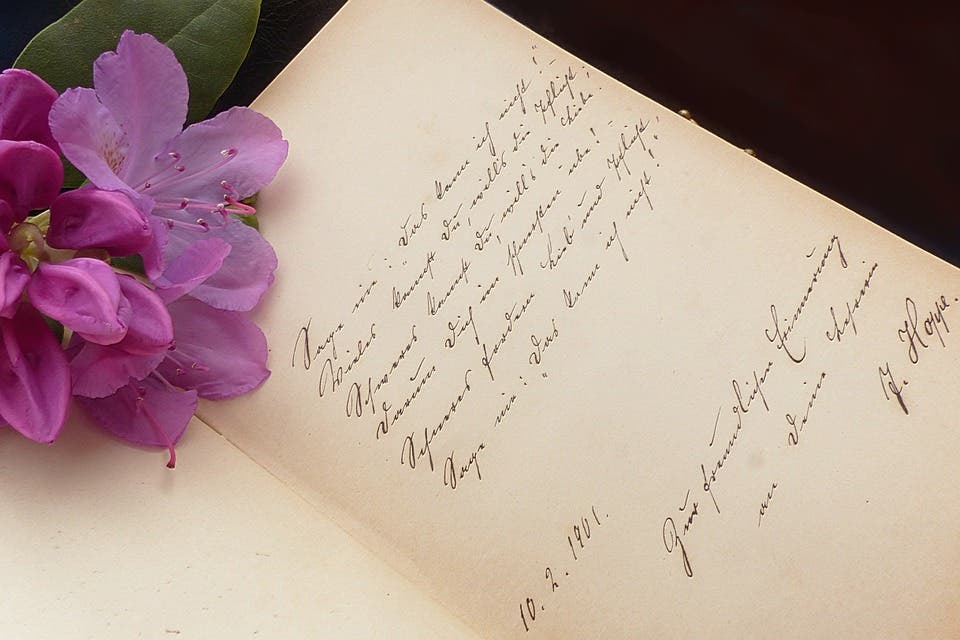 Sage nie: „Das kann ich nicht!“ –
Vieles kannst Du, will's die Pflicht.
Schweres kannst Du, will's die Liebe!
Darum Dich im Schwersten übe! –
Schweres fordern Lieb' und Pflicht!
Sage nie: „Das kann ich nicht!“
Zur freundlichen Erinnerung
an Deine Lehrerin
J. Hoppe.
10. 2. 1901.